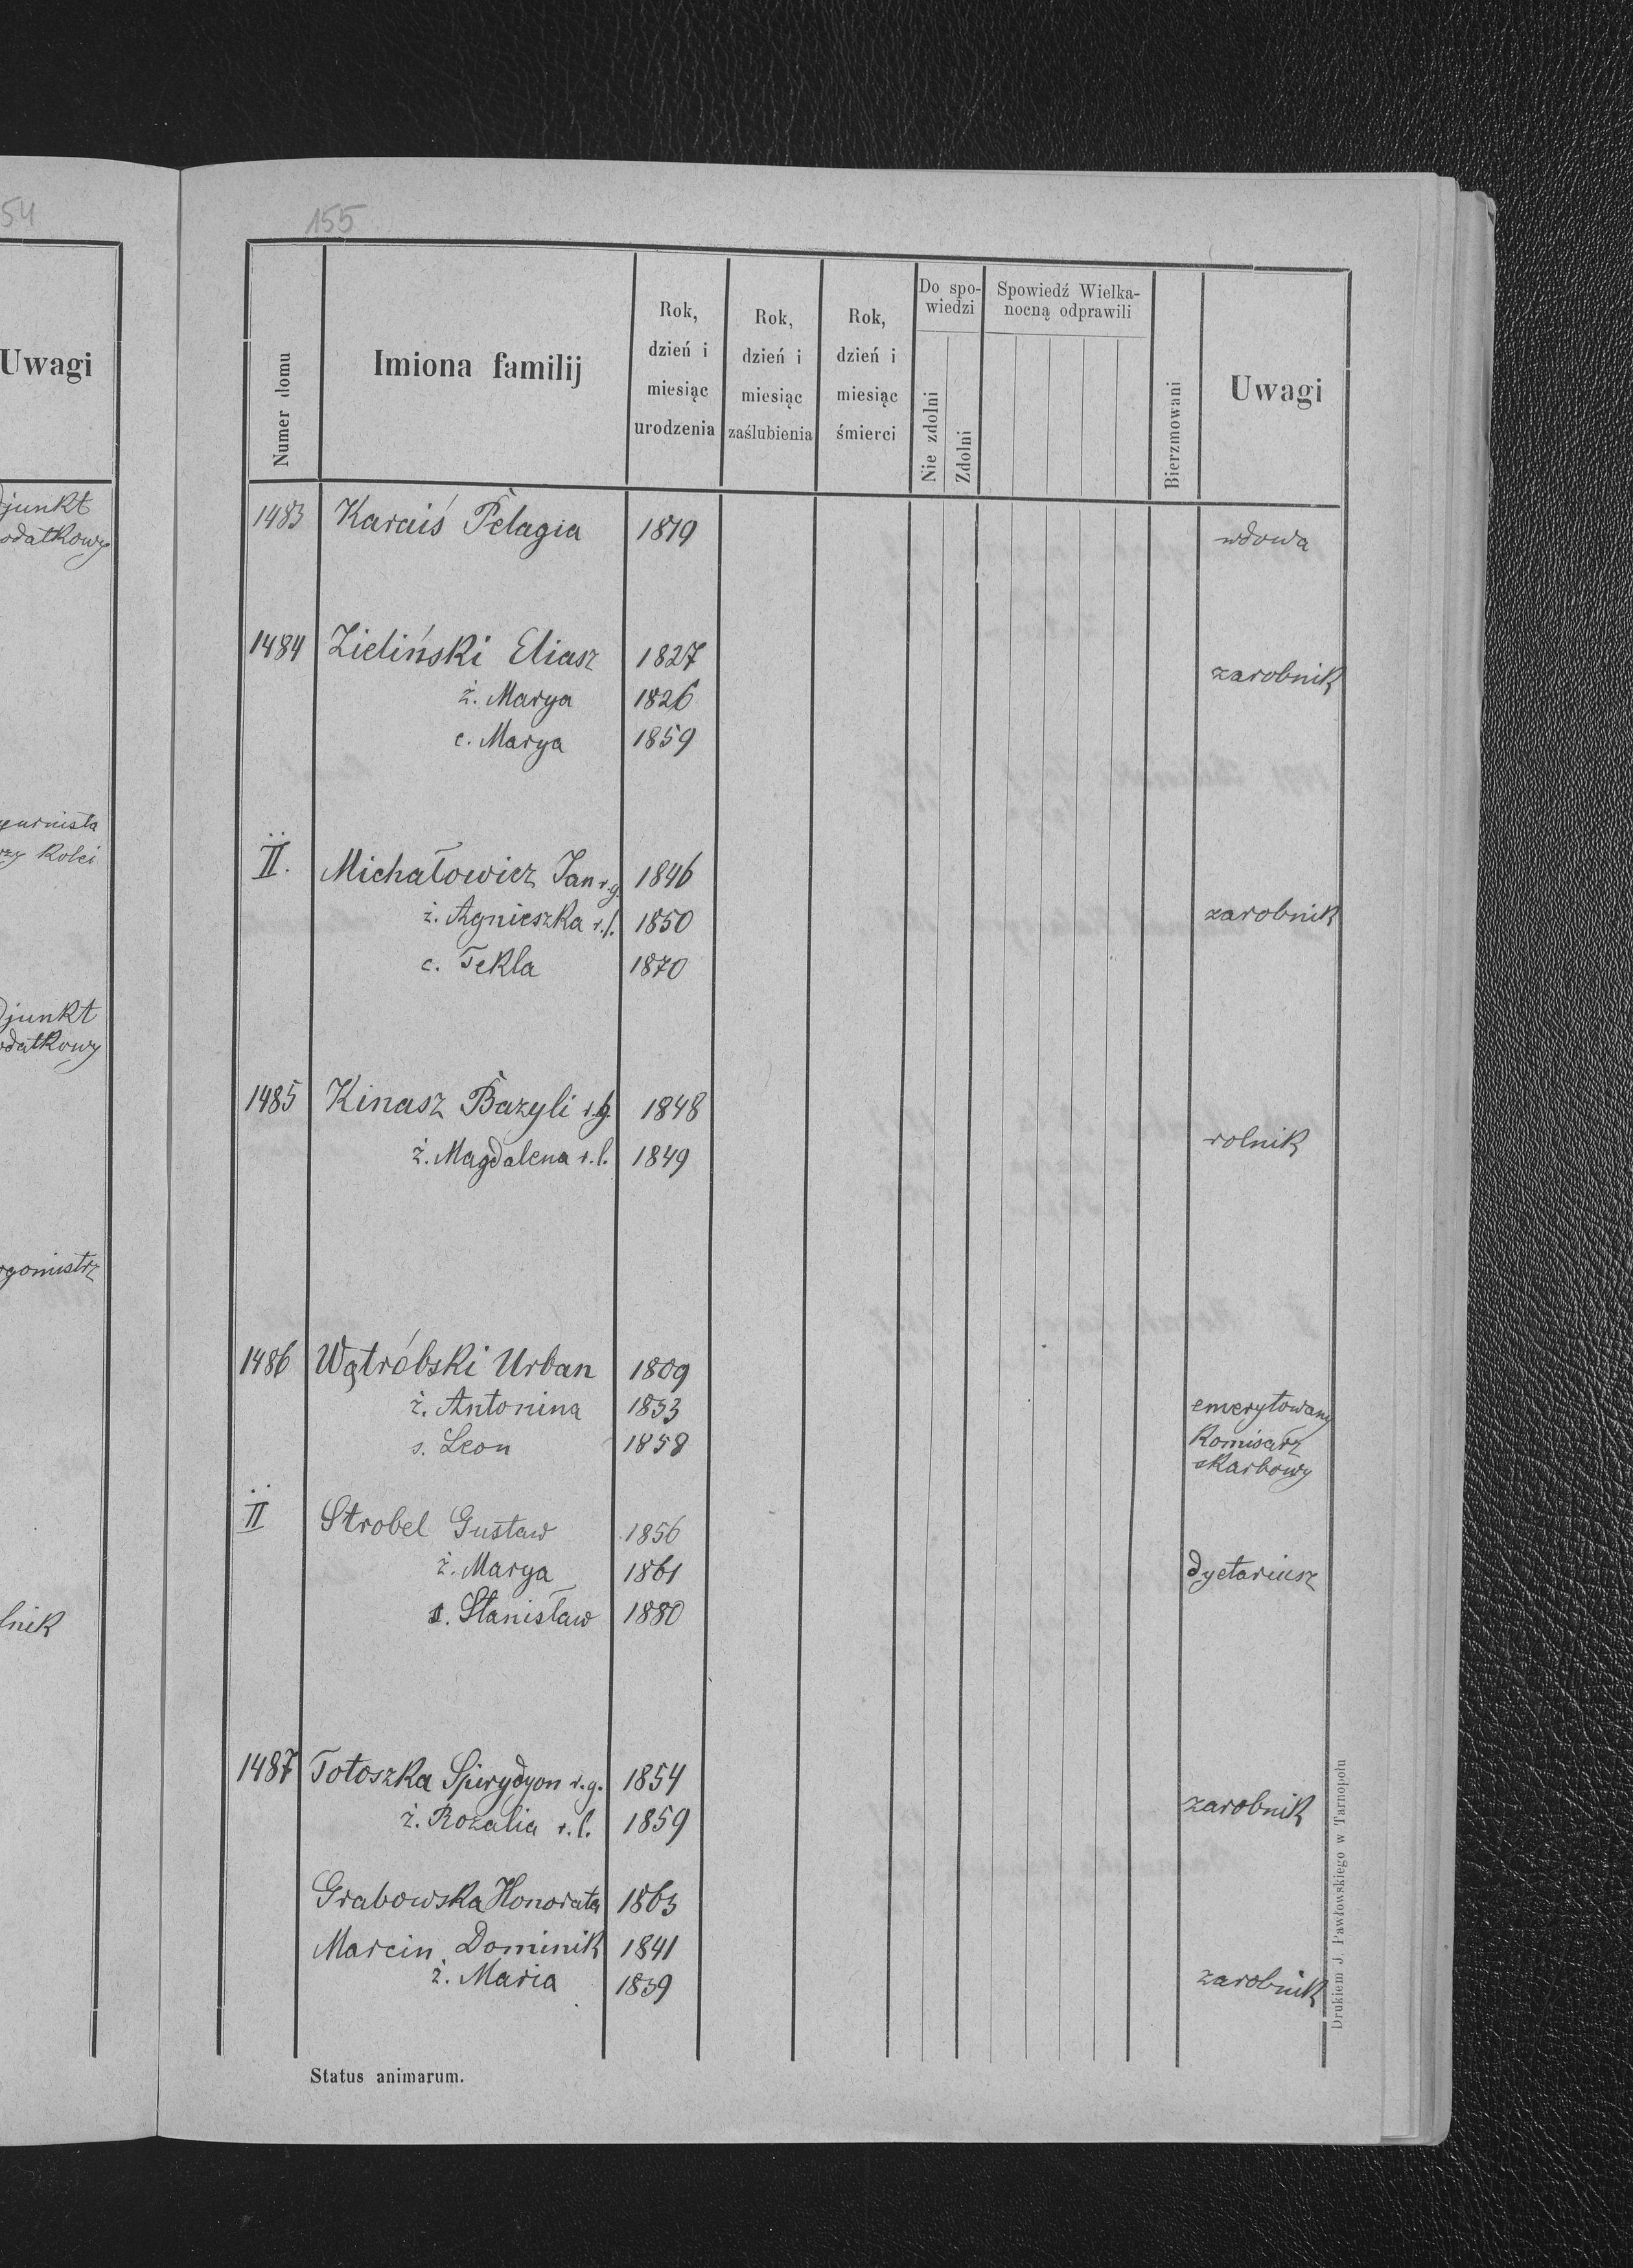 54
Uwagi
155
Numer domu
Imiona familij
Rok, dzień i miesiąc urodzenia
Rok, dzień i miesiąc zaślubienia
Rok, dzień i miesiąc śmierci
Do spo-
wiedzi
Nie zdolni
Zdolni
Spowiedź Wielka-
nocną odprawili
Bierzmowani
Uwagi
1483 Karaiś Pelagia 1819 wdowa
1484 Zieliński Eliasz 1827 zarobnik
ż. Marya 1826
c. Marya 1859
II. Michałowicz Jan r.g. 1846
ż. Agnieszka r.l. 1850 zarobnik
c. Tekla 1870
1485 Kinasz Bazyli r.g. 1848
ż. Magdalena r.l. 1849 rolnik
1486 Wątróbski Urban 1809
ż. Antonina 1833 emerytowany
s. Leon 1858 Komisarz
skarbowy
II Strobel Gustaw 1856
ż. Marya 1861 dyetariusz
s. Stanisław 1880
1487 Totoszka Spirydyon r.g. 1854
ż. Rozalia r.l. 1859 zarobnik
Grabowska Honorata 1863
Marcin Dominik 1841
ż. Maria 1839 zarobnik
Status animarum.
Drukiem J. Pawłowskiego w Tarnopolu
junkt
odatkowy
urnista
zy Kolei
junkt
odatkowy
gomistrz
lnik